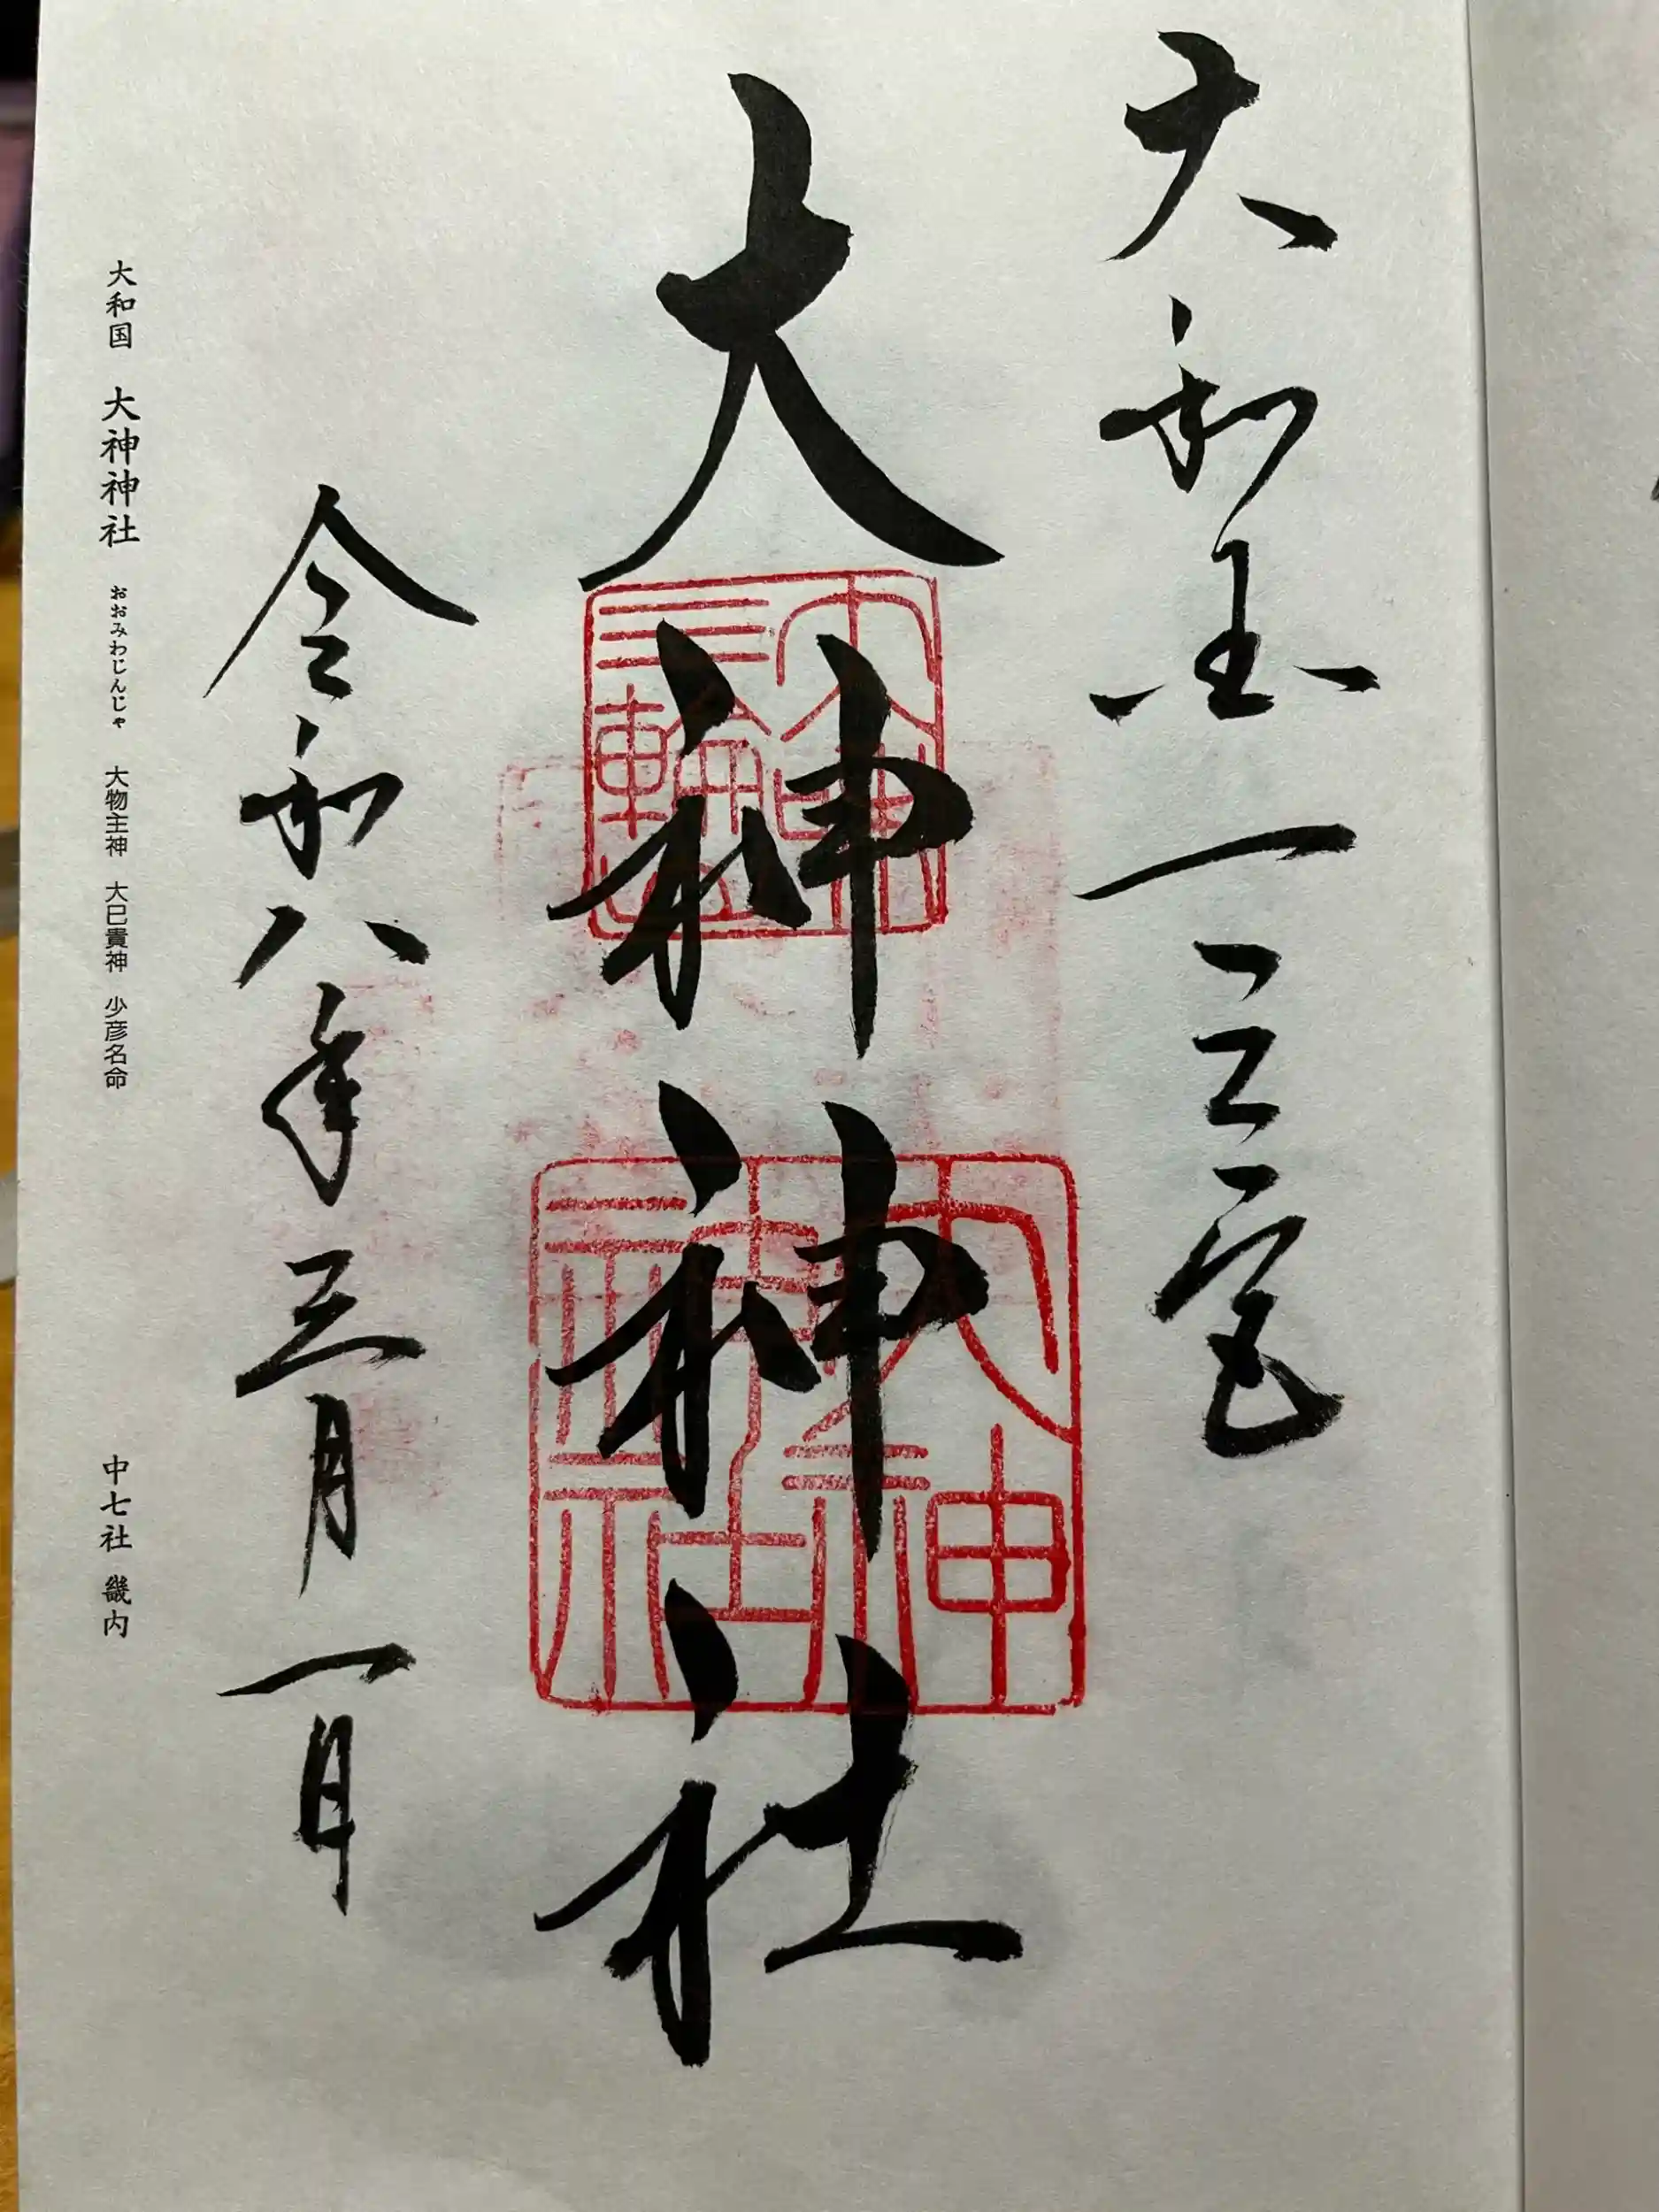 大和国一之宮
大神神社
令和八年三月一日
大和国 大神神社 おおみわじんじゃ 大物主神 大己貴神 少彦名命 中七社 畿内
大神神社